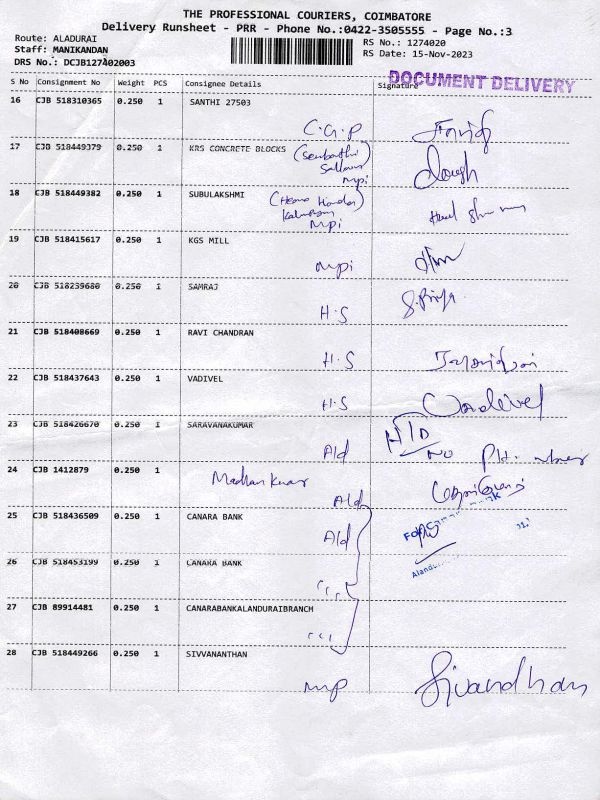 THE PROFESSIONAL COURIERS, COIMBATORE
Delivery Runsheet - PRR - Phone No.:0422-3505555 - Page No.:3
Route: ALADURAI
RS No.: 1274020
Staff: MANIKANDAN
RS Date: 15-Nov-2023
DRS No.: DCJB127402003
DOCUMENT DELIVERY
S No Consignment No Weight PCS Consignee Details Signature
16 CJB 518310365 0.250 1 SANTHI 27503
C.G.P
17 CJB 518449379 0.250 1 KRS CONCRETE BLOCKS
Mpi
18 CJB 518449382 0.250 1 SUBULAKSHMI
Mpi
19 CJB 518415617 0.250 1 KGS MILL
Mpi
20 CJB 518239680 0.250 1 SAMRAJ
H.S S.Priya
21 CJB 518408669 0.250 1 RAVI CHANDRAN
H.S
22 CJB 518437643 0.250 1 VADIVEL
H.S Vadivel
23 CJB 518426670 0.250 1 SARAVANAKUMAR
Ald NO PH. number
24 CJB 1412879 0.250 1
Madhan Kumar Ald
25 CJB 518436509 0.250 1 CANARA BANK
Ald
26 CJB 518453199 0.250 1 CANARA BANK
27 CJB 89914481 0.250 1 CANARABANKALANDURAIBRANCH
28 CJB 518449266 0.250 1 SIVVANANTHAN
Mp Sivandhan